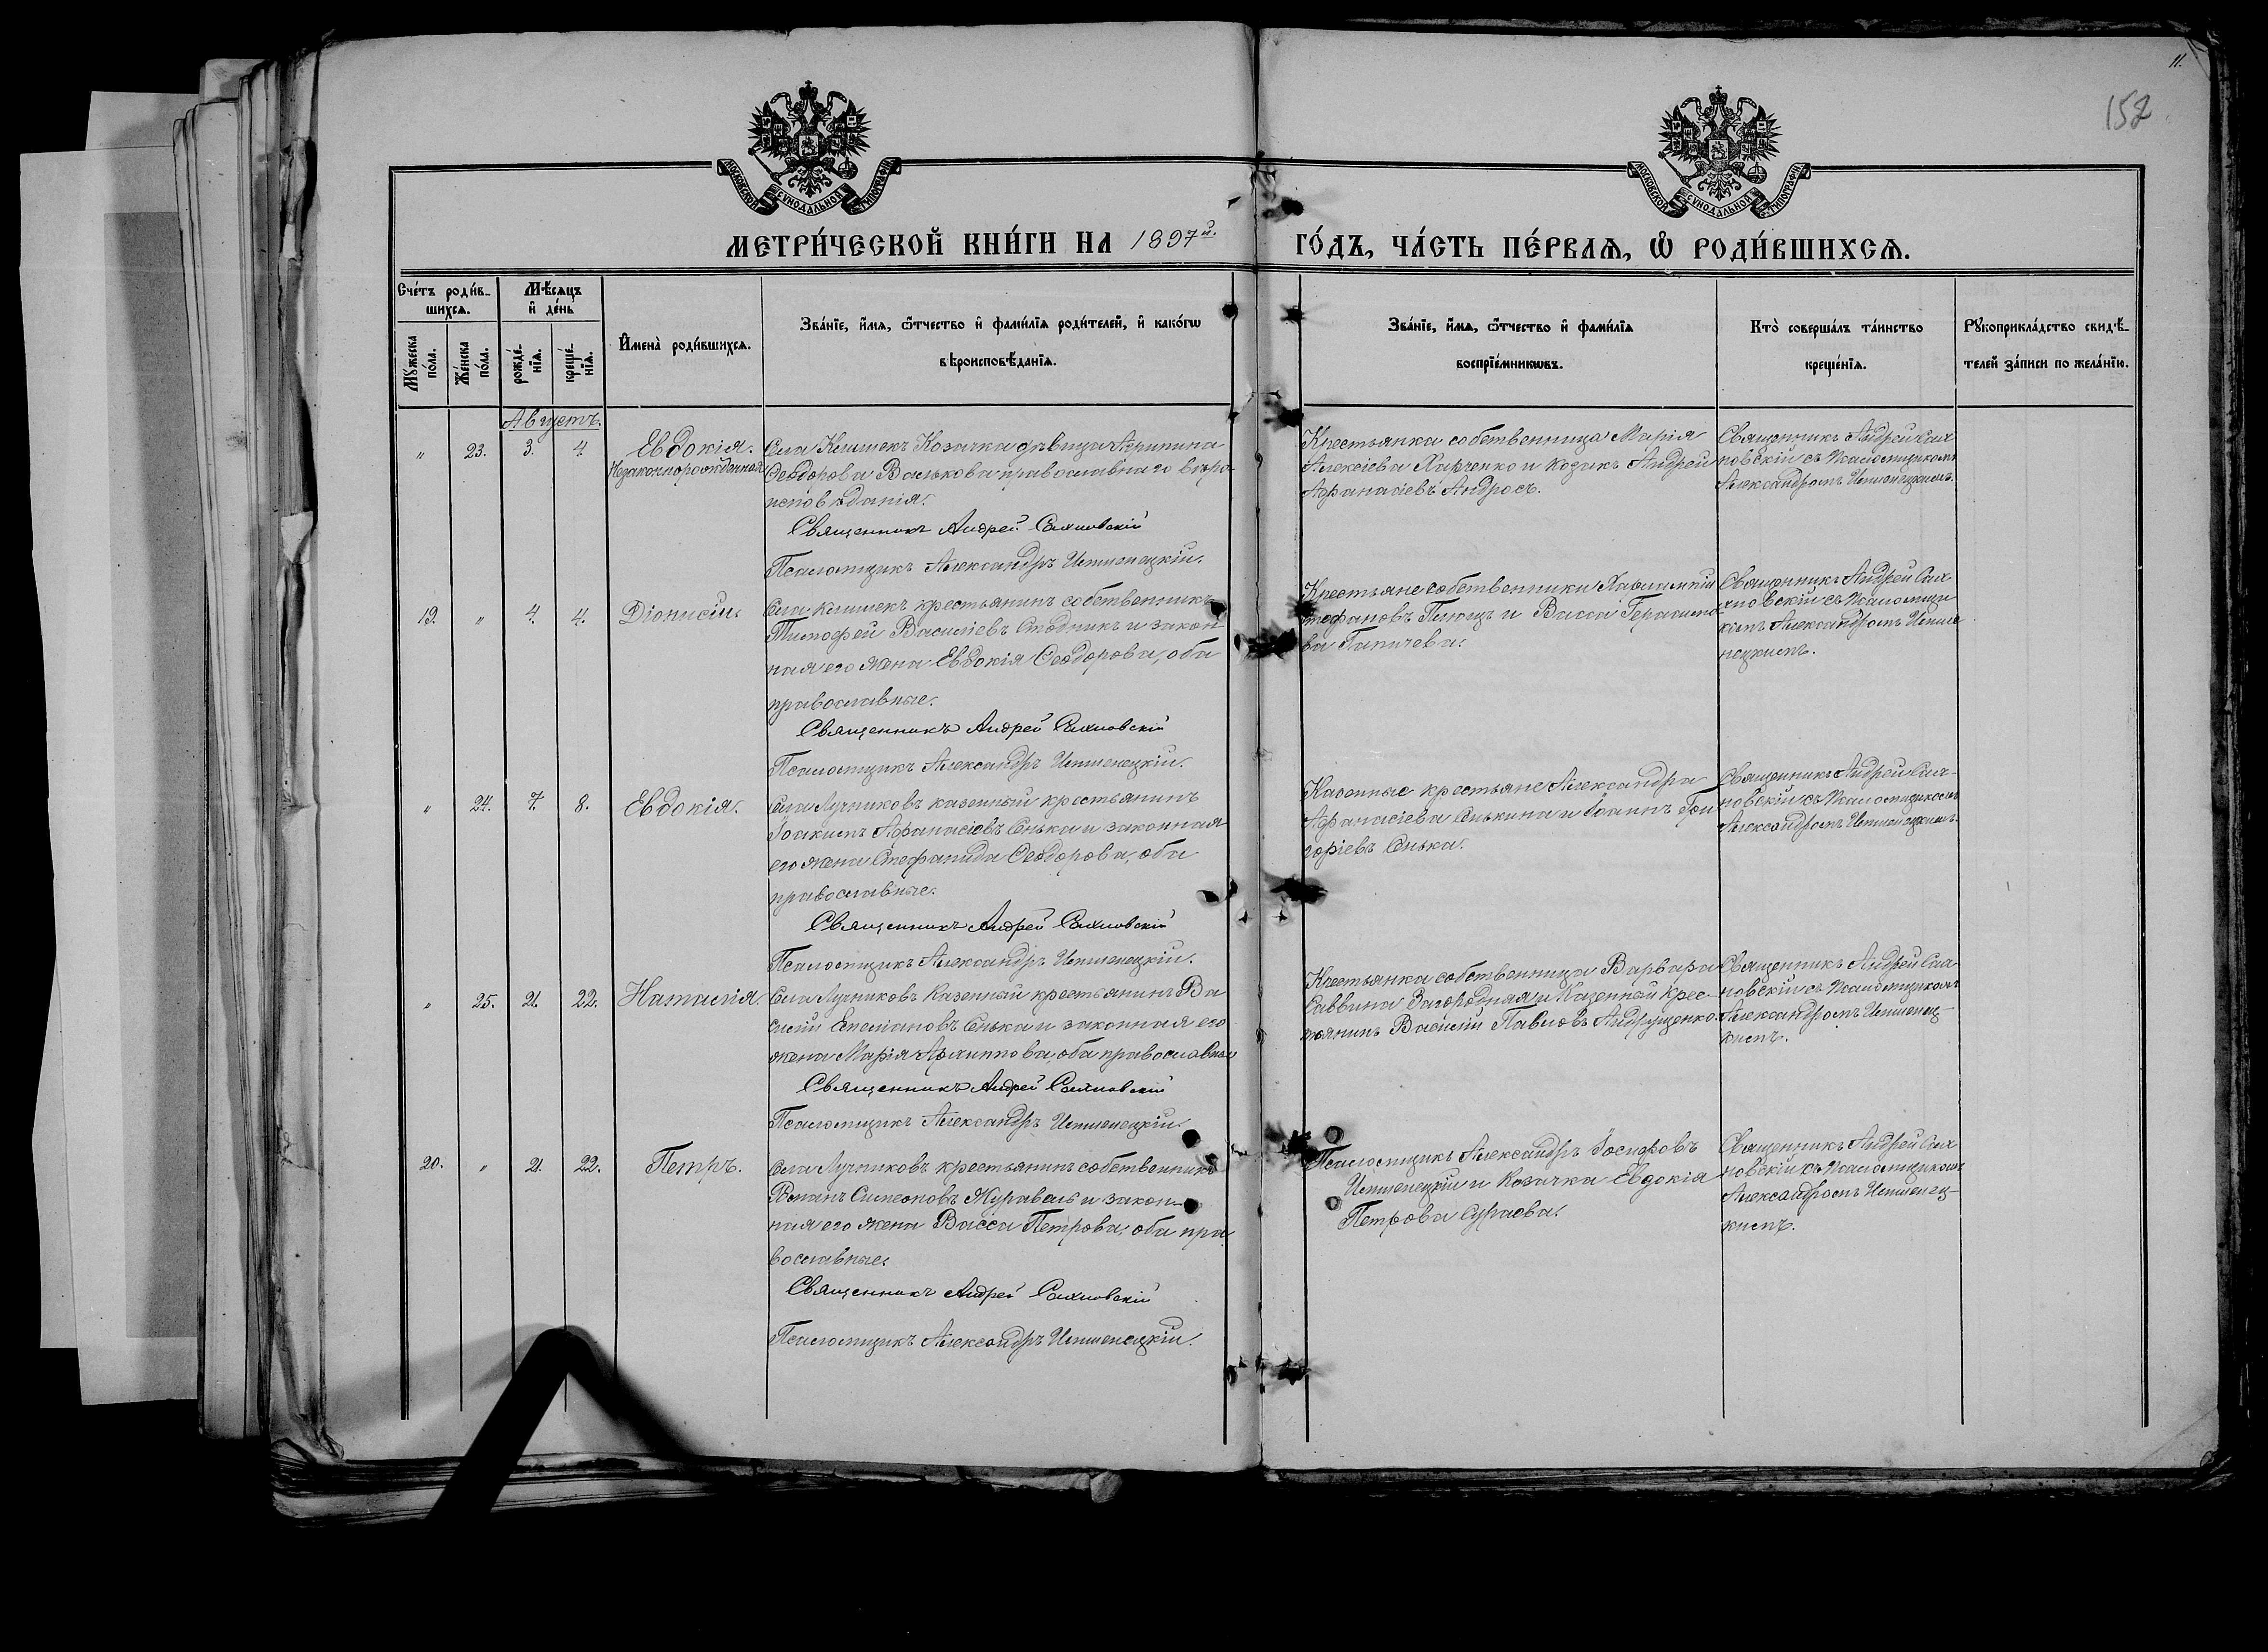 11.
152
МОСКОВСКОЙ СУНОДАЛЬНОЙ ТИПОГРАФІИ
МОСКОВСКОЙ СУНОДАЛЬНОЙ ТИПОГРАФІИ
МЕТРИ́ЧЕСКОЙ КНИ́ГИ НА 1897й.
ГО́ДЪ, ЧА́СТЬ ПЕ́РВАѦ, Ѡ РОДИ́ВШИХСѦ.
Сче́тъ роди́в-
шихсѧ.
Мѣ́сяцъ
и де́нь
Мꙋ́жеска
по́ла.
Же́нска
по́ла.
рожде́-
нїѧ.
креще́-
нїѧ.
И҆мена̀ роди́вшихсѧ.
Зва́нїе, и҆́мѧ, ѻ҆́тчество и҆ фами́лїѧ роди́телей, и҆ како́гѡ
вѣроисповѣ́данїѧ.
Зва́нїе, и҆́мѧ, ѻ҆́тчество и҆ фами́лїѧ
воспрїе́мникѡвъ.
Кто̀ соверша́лъ та́инство
креще́нїѧ.
Рꙋкоприкла́дство свидѣ́-
телей за́писи по жела́нїю.
Августъ.
" 23. 3. 4. Евдокія.
Незаконнорожденная
Села Клишекъ Козачка дѣвица Агрипина
Ѳеодорова Васькова православнаго вѣро-
исповѣданія.
Священникъ Андрей Сахновскій
Псаломщикъ Александръ Иппиенецкій.
Крестьянка собственница Марія
Алексіева Харченко и козакъ Андрей
Афанасіевъ Андросъ.
Священникъ Андрей Сах-
новскій съ псаломщикомъ
Александромъ
19. " 4. 4. Діонисій.
Села Клишекъ крестьянинъ собственникъ
Тимофей Василіевъ Стодникъ и закон
ная его жена Евдокія Ѳеодорова, оба
православные.
Священникъ Андрей Сахновскій
Псаломщикъ Александръ
Крестьяне собственники
Стефановъ и Васса Герасимо
ва
Священникъ Андрей Сах
новскій съ псаломщи
комъ Александромъ
нецкимъ.
" 24. 7. 8. Евдокія.
Села Лучниковъ казенный крестьянинъ
Іоакимъ Афанасіевъ Сенька и законная
его жена Стефанида Ѳеодорова, оба
православные.
Священникъ Андрей Сахновскій
Псаломщикъ Александръ
Казенные крестьяне Александра
Афанасіева Сенькина и Іоаннъ Гри
горіевъ Сенька.
Священникъ Андрей Сах-
новскій съ псаломщикомъ
Александромъ
" 25. 21. 22. Наталія.
Села Лучниковъ казенный крестьянинъ Ва
силій Емеліановъ Сенька и законная его
жена Марія Архиппова оба православные
Священникъ Андрей Сахновскій
Псаломщикъ Александръ
Крестьянка собственница Варвара
Саввина Загородняя и казенный крес-
тьянинъ Василій Павловъ Андрущенко.
Священникъ Андрей Сах
новскій съ псаломщикомъ
Александромъ
кимъ.
20. " 21. 22. Петръ.
Села Лучниковъ крестьянинъ собственникъ
Романъ Симеоновъ Журавель и закон-
ная его жена Васса Петрова, оба пра
вославные.
Священникъ Андрей Сахновскій
Псаломщикъ Александръ
Псаломщикъ Александръ Іосифовъ
и Козачка Евдокія
Петрова
Священникъ Андрей Сах
новскій съ псаломщикомъ
Александромъ
кимъ.